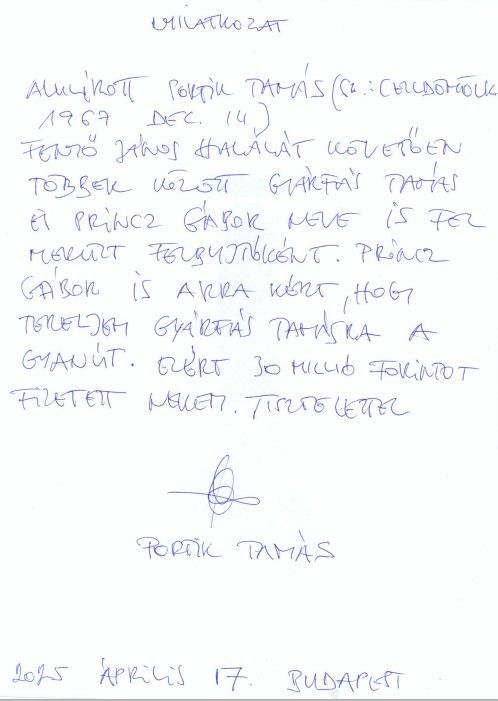 NYILATKOZAT
ALULÍROTT PORTIK TAMÁS (SZ.: CELLDÖMÖLK
1967 DEC. 14)
FENYŐ JÁNOS HALÁLÁT KÖVETŐEN
TÖBBEK KÖZÖTT GYÁRFÁS TAMÁS
ÉS PRINCZ GÁBOR NEVE IS FEL
MERÜLT FELBUJTÓKÉNT. PRINCZ
GÁBOR IS ARRA KÉRT, HOGY
TERELJEM GYÁRFÁS TAMÁSRA A
GYANÚT. EZÉRT 30 MILLIÓ FORINTOT
FIZETETT NEKEM. TISZTELETTEL
PORTIK TAMÁS
2025 ÁPRILIS 17. BUDAPEST